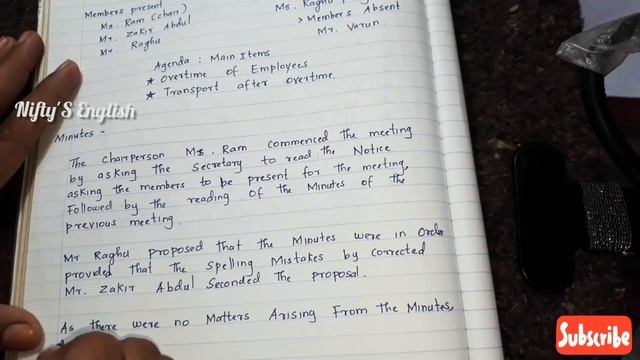 Members present
Ms. Ram (chan)
Mr. Zakir Abdul
Mr. Raghu
Ms. Raghu
> Members Absent
Mr. Varun.
Agenda : Main Items
* Overtime of Employees
* Transport after overtime.
Nifty'S English
Minutes -
The Chairperson Ms. Ram commenced the meeting
by asking the Secretary to read the Notice
asking the members to be present for the meeting,
Followed by the reading Of the Minutes of the
previous meeting.
Mr Raghu proposed that the Minutes were in Order
provided that the Spelling Mistakes by corrected
Mr. Zakir Abdul Seconded the Proposal.
As there were no Matters Arising From the Minutes,
Subscribe